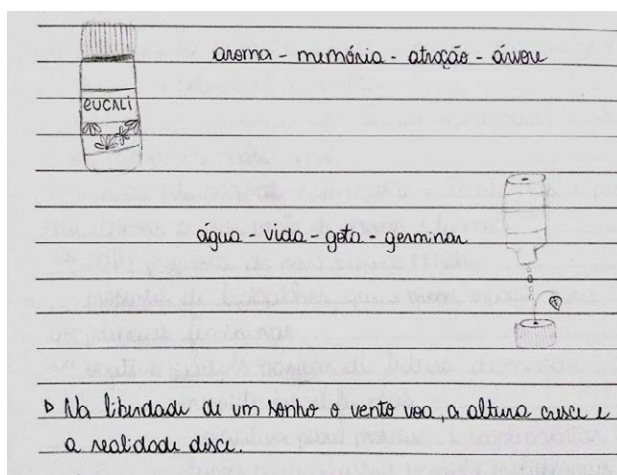 aroma - memória - atração - árvore
EUCALI
água - vida - gota - germinar
▷ Na liberdade de um sonho o vento voa, a altura cresce e
a realidade desce.